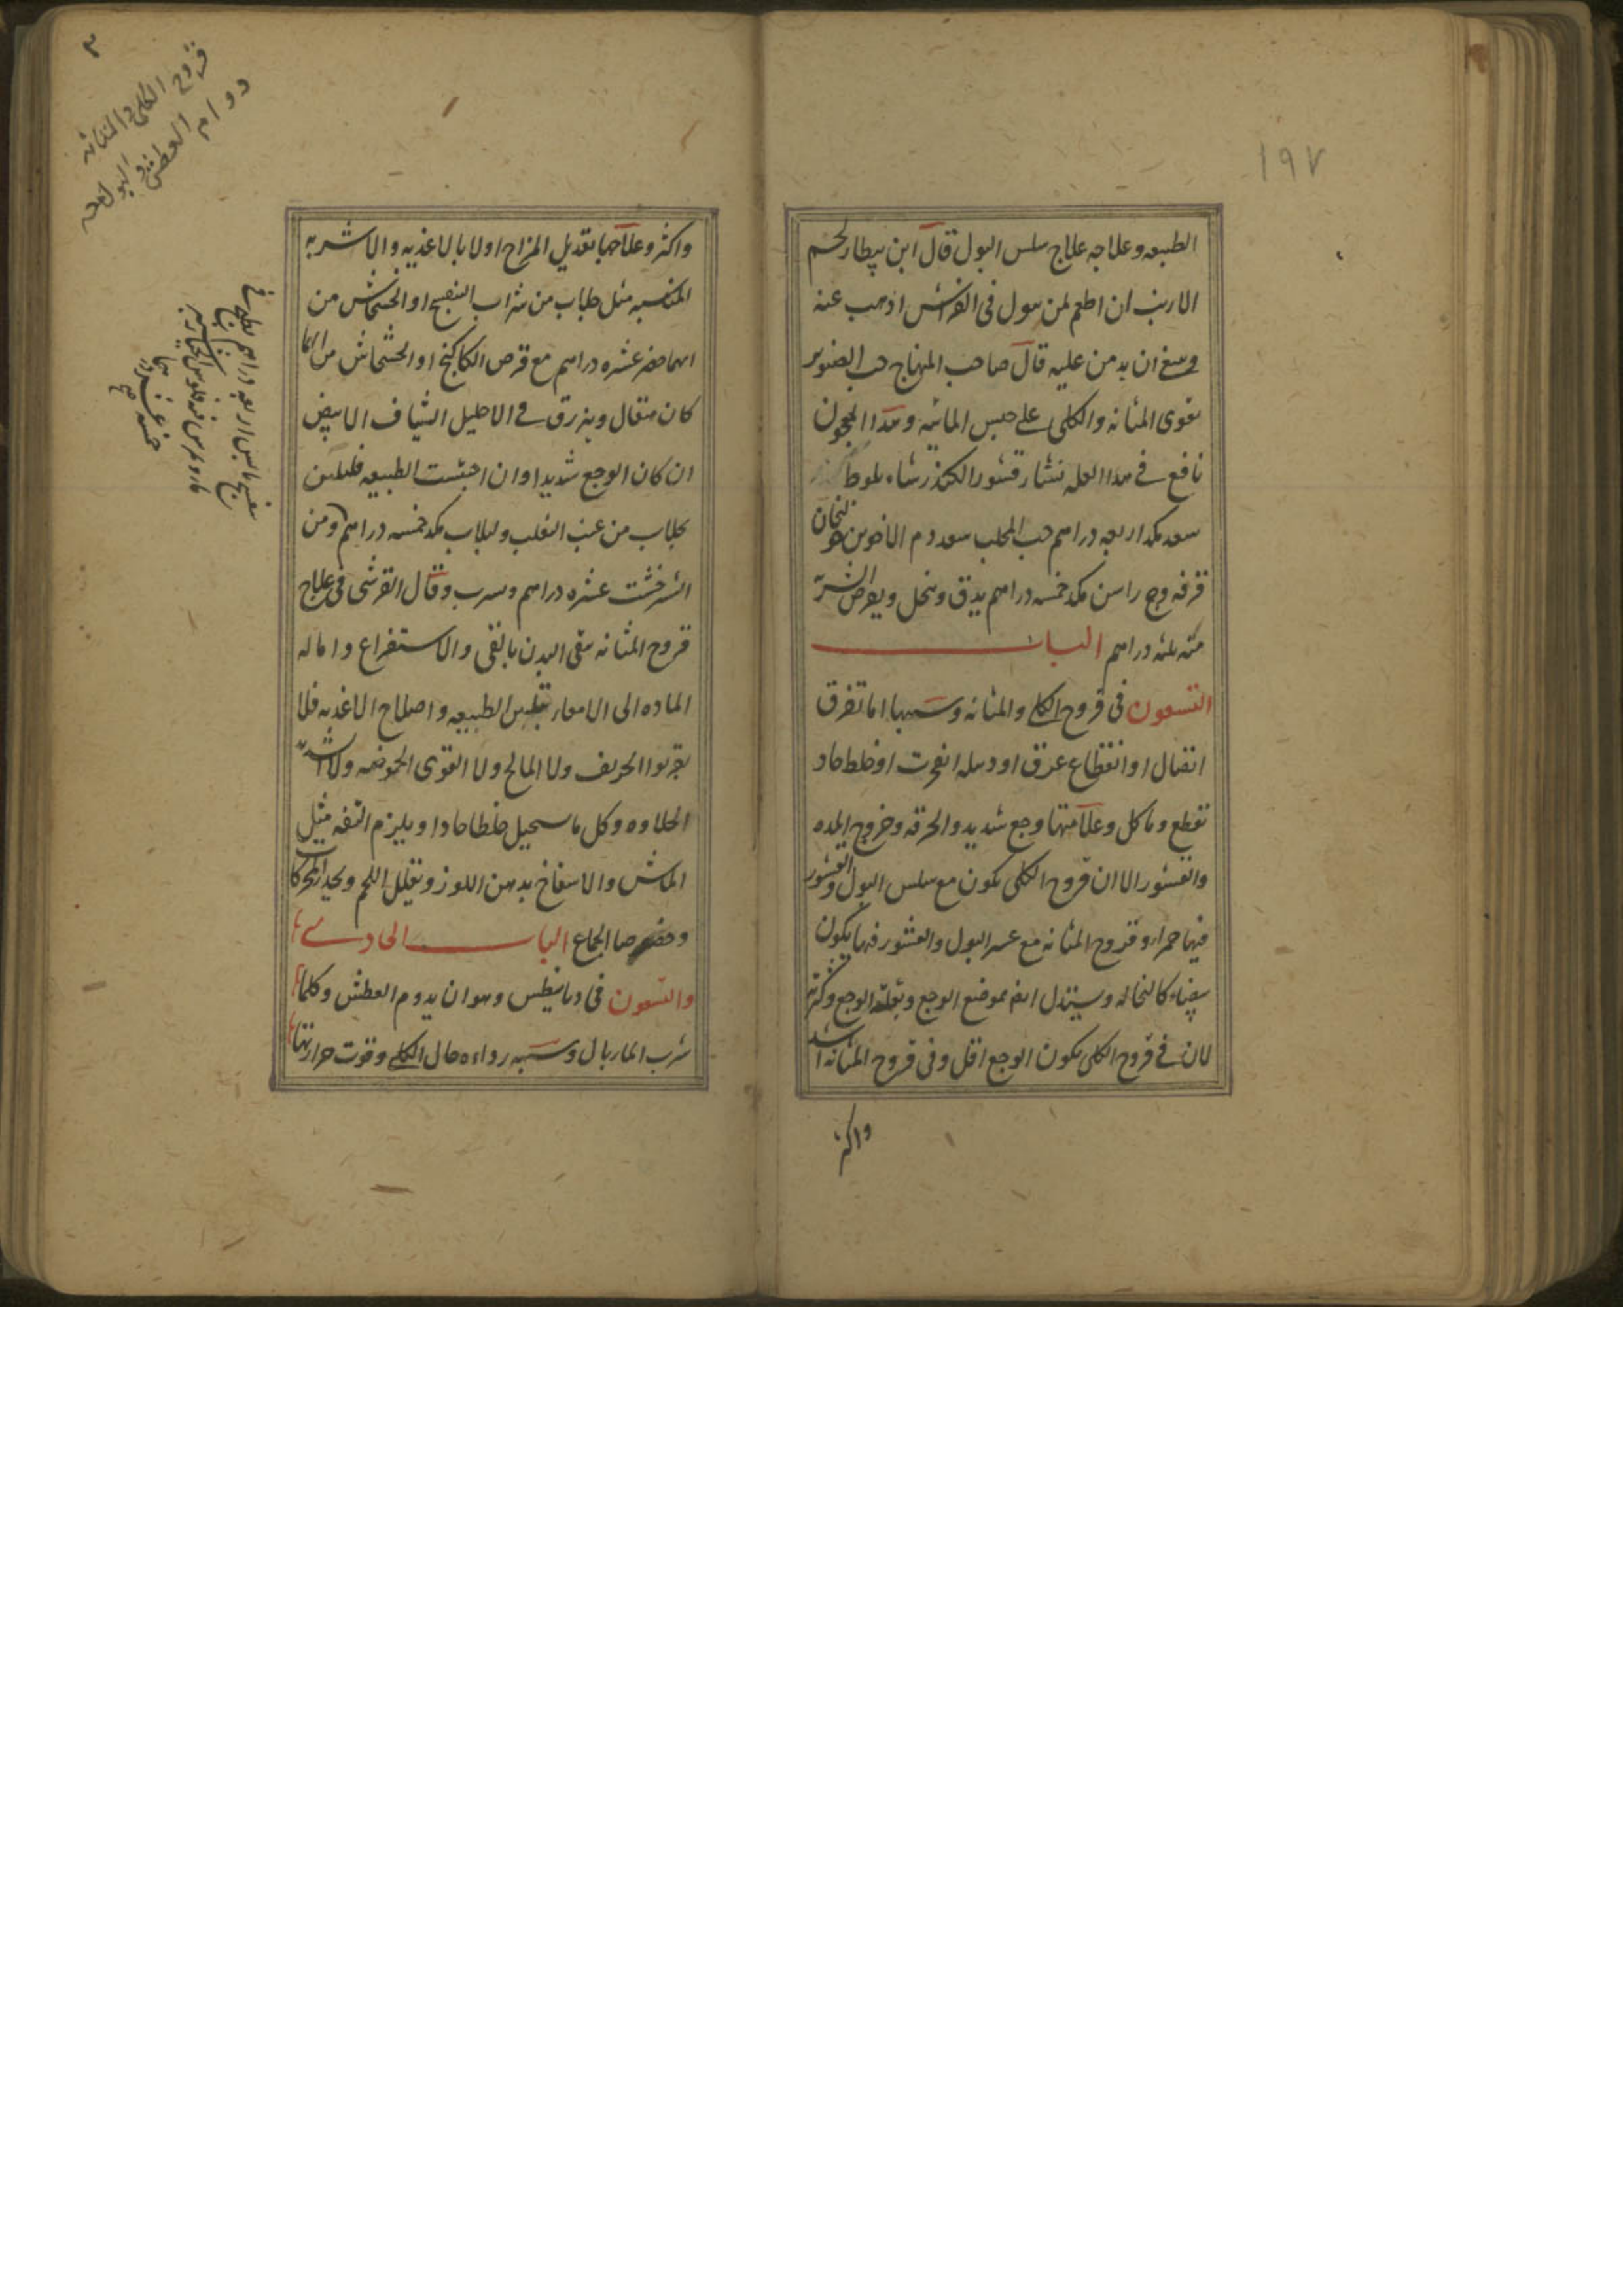 ١٩٧
الطبيعه وعلاجه علاج سلس البول قال ابن بيطار لحم
الارنب ان اطعم لمن يبول فى الفراش اذهب عنه
وينبغى ان يدمن عليه قال صاحب المنهاج حب الصنوبر
يقوى المثانه والكلى على حبس المائيه وهذا المعجون
نافع فى هذا العله نشار قشور الكندر شاه بلوط
سعد مكد اربعه دراهم حب المحلب سعد دم الاخوين خولنجان
قرفه وج راسن مكد خمسه دراهم يدق وينخل ويقرص الشربة
منه ثلثه دراهم الباب
التسعون فى قروح الكلى والمثانه وسببها اما تفرق
اتصال او انقطاع عرق او دبيله انفجرت او خلط حاد
تقطع وتاكل وعلامتها وجع شديد والحرقه وخروج المده
والقشور الا ان قروح الكلى يكون مع سلس البول والقشور
فيها حمراء وقروح المثانه مع عسر البول والقشور فيها يكون
بيضاء كالنخاله ويستدل ايضا بموضع الوجع وبقلة الوجع وكثرته
لان فى قروح الكلى يكون الوجع اقل وفى قروح المثانه اشد
واكثر
٣
قروح الكلى والمثانه
دوام العطش والبول
واكثر وعلاجها بتعديل المزاج اولا بالاغذيه والاشربه
المناسبه مثل جلاب من شراب البنفسج او الخشخاش من
ايهما حضر عشره دراهم مع قرص الكاكنج او الخشخاش من ايها
كان مثقال ويزرق فى الاحليل الشياف الابيض
ان كان الوجع شديدا وان احتبست الطبيعه فليلين
بجلاب من عنب الثعلب ولبلاب مكد خمسه دراهم ومن
الشيرخشت عشره دراهم ويشرب وقال القرشى فى علاج
قروح المثانه ينقى البدن بالقى والاستفراغ واماله
الماده الى الامعاء بتليين الطبيعه واصلاح الاغذيه فلا
يقربوا الحريف ولا المالح ولا القوى الحموضه ولا شديد
الحلاوه وكل ما يستحيل خلطا حادا ويلزم التفه مثل
الماش والاسفاناخ بدهن اللوز ويقلل اللحم ويحذر الحركات
وخصوصا الجماع الباب الحادى
والتسعون فى ديابيطس وهو ان يدوم العطش وكلما
شرب الماء بال وسببه رداءه حال الكلى وقوت حرارتها